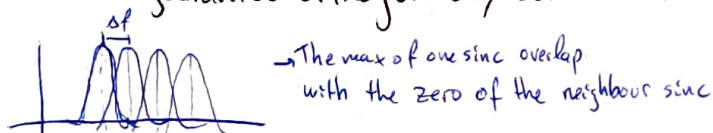 Δf
→ The max of one sinc overlap
with the zero of the neighbour sinc